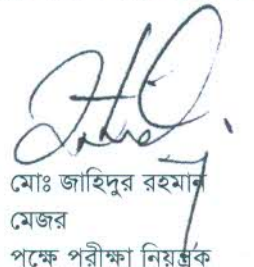 মোঃ জাহিদুর রহমান
মেজর
পক্ষে পরীক্ষা নিয়ন্ত্রক